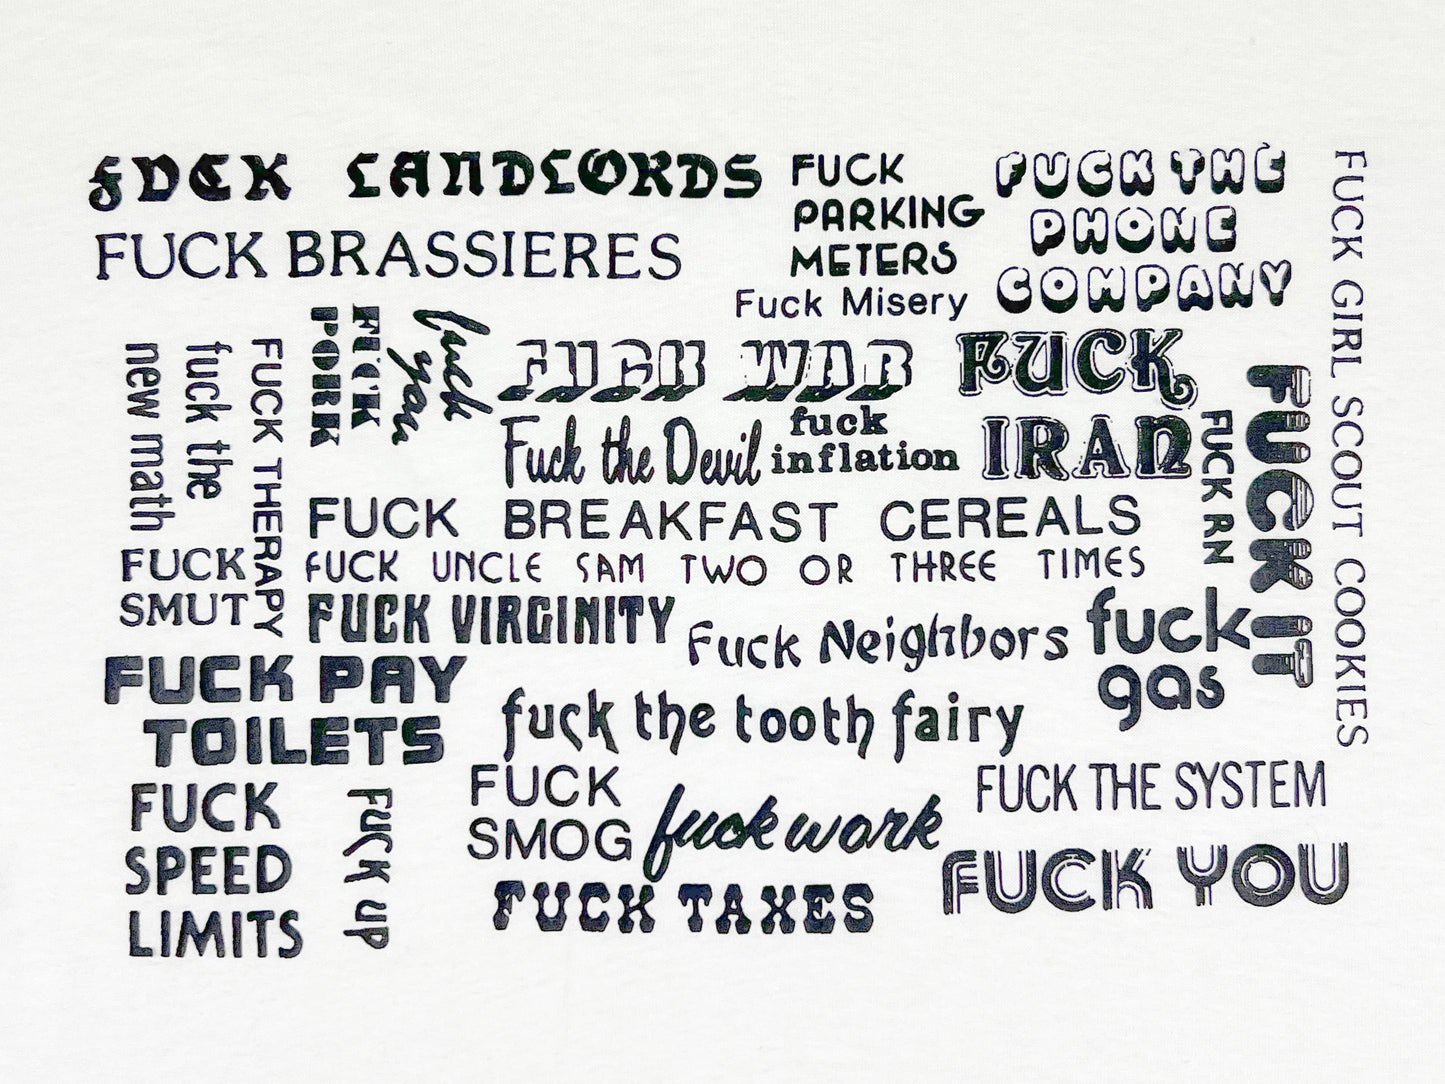 FUCK LANDLORDS
FUCK BRASSIERES
FUCK
PARKING
METERS
Fuck Misery
FUCK THE
PHONE
COMPANY
FUCK GIRL SCOUT COOKIES
fuck the
new math
FUCK THERAPY
FUCK
PORK
fuck
you
FUCK WAR
FUCK
IRAN
Fuck the Devil
fuck
inflation
FUCK RN
FUCK IT
FUCK BREAKFAST CEREALS
FUCK
SMUT
FUCK UNCLE SAM TWO OR THREE TIMES
FUCK VIRGINITY
Fuck Neighbors
fuck
gas
FUCK PAY
TOILETS
fuck the tooth fairy
FUCK
SPEED
LIMITS
FUCK UP
FUCK
SMOG
fuck work
FUCK THE SYSTEM
FUCK TAXES
FUCK YOU